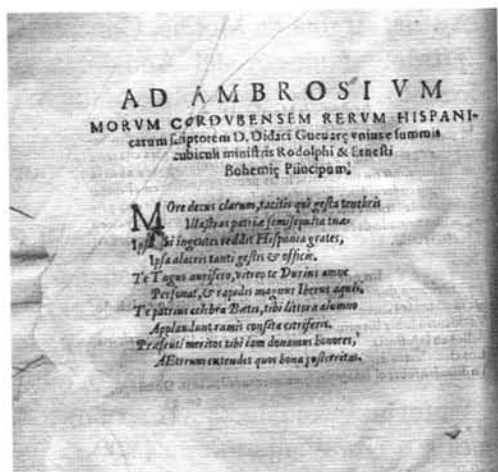 AD AMBROSIVM
MORVM CORDVBENSEM RERVM HISPANI-
carum scriptorem D. Didaci Gueuarę vnius e summis
cubiculi ministris Rodolphi & Ernesti
Bohemię Principum.
MOre decus clarum, tacitis qui gesta tenebris
Illustras patriæ semisepulta tuæ
Ipsa tibi ingentes reddit Hispania grates,
Ipsa alacris tanti gestit & officii.
Te Tagus aurifero, vitreo te Durius amne
Personat, & rapidis magnus Iberus aquis.
Te patrius celebrat Bætis, tibi littora alumno
Applaudunt ramis consita citriferis.
Præsenti meritos tibi iam donamus honores,
AEternum quos bona posteritas.